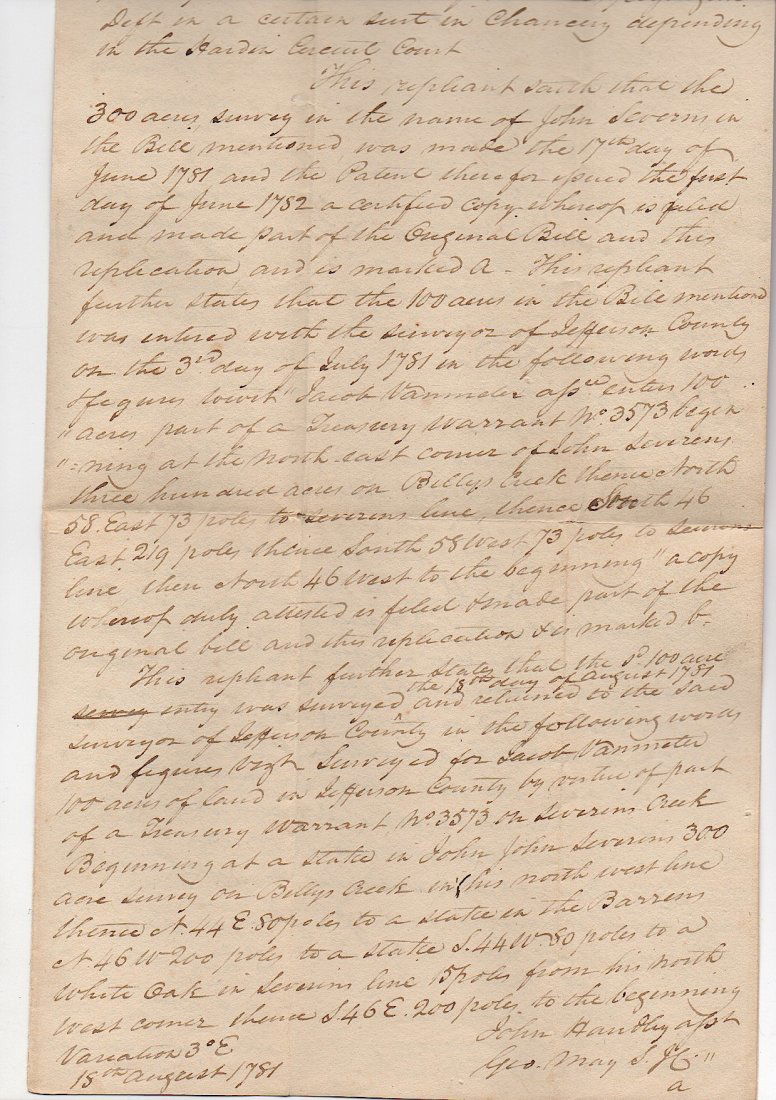 Deft in a certain suit in Chancery depending
in the Hardin Circuit Court
This repliant saith that the
300 acres survey in the name of John Severns in
the Bill mentioned was made the 17th day of
June 1781 and the Patent therefor issued the first
day of June 1782 a certified copy whereof is filed
and made part of the Original Bill and this
replication and is marked A - This repliant
further states that the 100 acres in the Bill mentiond
was entered with the surveyor of Jefferson County
on the 3rd day of July 1781 in the following words
& figures towit " Jacob Vanmeter assee enters 100
" acres part of a Treasury Warrant No 3573 begin
" =ning at the north east corner of John Severens
three hundred acres on Billys Creek thence North
58. East 73 poles to Severens line, thence South 46
East 219 poles thence South 58 West 73 poles to Severens
line then North 46 West to the beginning " a copy
whereof duly attested is filed & made part of the
original bill and this replication & is marked b-
This repliant further states that the sd 100 acre
the 18th day of August 1781
survey entry was surveyed ^ and returned to the said
surveyor of Jefferson County in the following words
and figures vizt Surveyed for Jacob Vanmeter
100 acres of land in Jefferson County by virtue of part
of a Treasury Warrant No 3573 on Severins Creek
Beginning at a stake in John John Severens 300
acre survey on Billys Creek in his north west line
thence N. 44 E. 80 poles to a stake in the Barrens
N 46 W 200 poles to a stake S. 44 W. 80 poles to a
White Oak in Severins line 15 poles from his north
west corner thence S. 46 E. 200 poles to the beginning
John Handley asst
Variation 3° E
Geo. May S. J C. "
18th August 1781
a